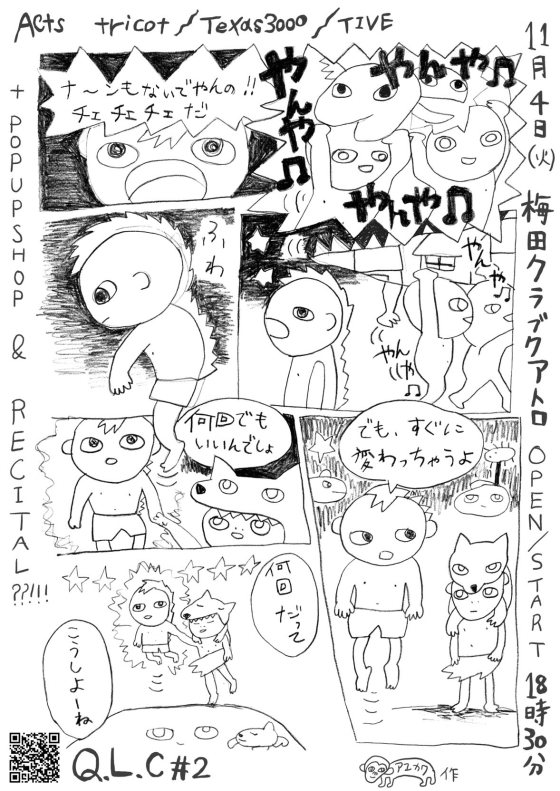 Acts tricot / Texas3000 / TIVE
11月4日(火) 梅田クラブクアトロ OPEN/START 18時30分
+ POPUPSHOP & RECITAL ??!!!
ナ〜ンもないでやんの!!
チェ チェ チェ だ
やんや♫
やんや♫
やんや♫
ふわ
やんや♫
やんや♫
何回でも
いいんでしょ
でも、すぐに
変わっちゃうよ
何回だって
こうしよーね
Q.L.C #2
アユカワ 作